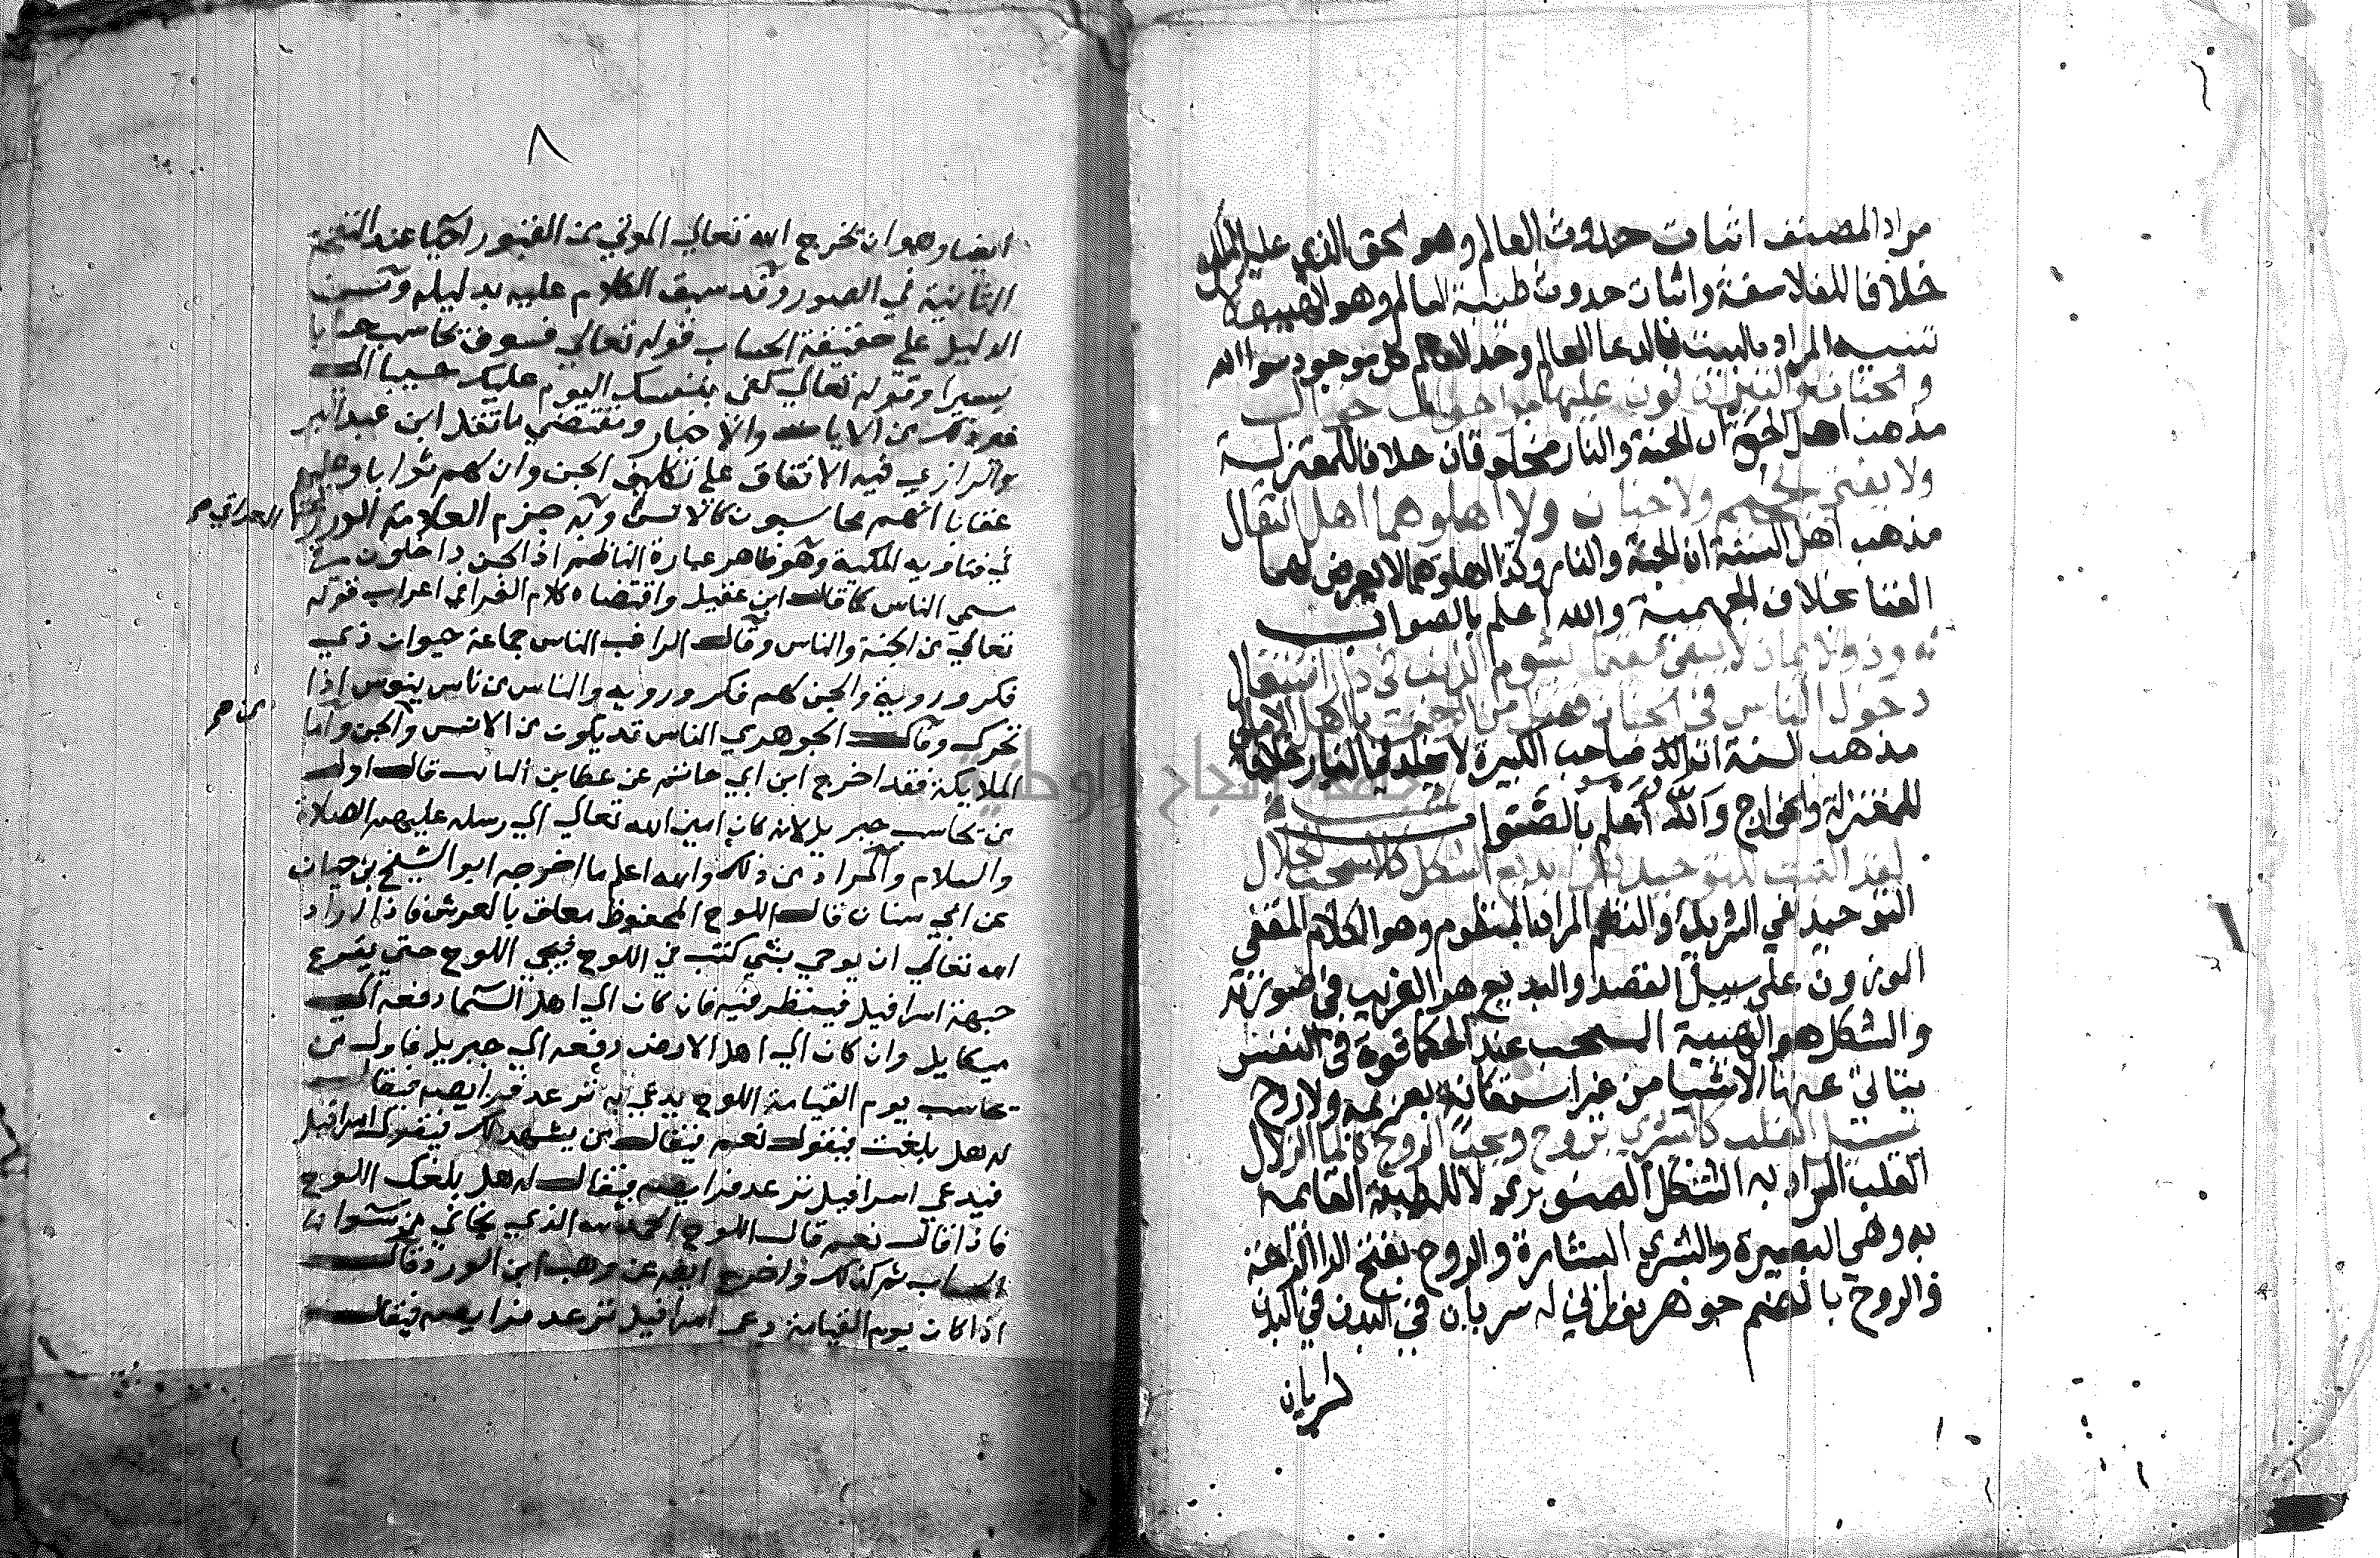 مراد المصنف اثبات حدوث العالم وهو الحق الذي عليه الملل
خلافا للفلاسفة واثبات حدوث طينة العالم وهو الهيولى
تنبيه المراد بالبيت العالم كل موجود سوا الله
مذهب اهل الحق ان الجنة والنار مخلوقان خلافا للمعتزلة
ولا يفنى الجحيم ولا جنان ولا اهلوهما اهل انتقال
مذهب اهل السنة ان الجنة والنار وكذا اهلوهما لا يعرض لهما
الفنا بخلاف الجهمية والله اعلم بالصواب
وذو الايمان لا يبقى مقيما بشوم الذنب في دار اشتعال
دخول الناس في الجنان فضل من الرحمن يا اهل الامالي
مذهب السنة ان صاحب الكبيرة لا يخلد في النار خلافا
للمعتزلة والخوارج والله اعلم بالصواب
لقد البست للتوحيد بديع الشكل كالسحر الحلال
التوحيد نفي الشريك والنظم المراد المنظوم وهو الكلام المقفى
الموزون على سبيل القصد والبديع هو الغريب في
والشكل هو الهيية السحر عند الحكما قوة في النفس
عنها الاشيا من غير استعانة بعزيمة ولا روح
يسلي القلب كالبشرى بروح ويحيي الروح كالما الزلال
القلب المراد به الشكل الصنوبري لا اللطيفة القايمة
به وهي البصيرة والبشرى البشارة والروح بفتح الرا الراحة
والروح بالضم جوهر له سريان في البدن
كسريان
٨
ايضا وهو ان يخرج الله تعالى الموتى من القبور احيا عند النفخة
الثانية في الصور وقد سبق الكلام عليه بدليله
الدليل على حقيقة الحساب قوله تعالى فسوف يحاسب حسابا
يسيرا وقوله تعالى كفى بنفسك اليوم عليك حسيبا الى
غير ذلك من الايات والاخبار ومقتضى ما نقله ابن عبد البر
والرازي فيه الاتفاق على تكليف الجن وان لهم ثوابا وعليهم
عقابا انهم يحاسبون كالانس وبه جزم العلامة
العراقي صح
في فتاويه المكية وهو ظاهر عبارة الناظم اذ الجن داخلون في
مسمى الناس كما قاله ابن عقيل واقتضاه كلام الفرا في اعراب قوله
تعالى من الجنة والناس وقال الراغب الناس جماعة حيوان ذي
فكر وروية والجن لهم فكر وروية والناس من ناس ينوس اذا
تحرك وقال الجوهري الناس قد يكون من الانس والجن واما
من صح
الملايكة فقد اخرج ابن ابي حاتم عن عطا بن السايب قال اول
من يحاسب جبريل لانه كان امين الله تعالى الى رسله عليهم الصلاة
والسلام والمراد من ذلك والله اعلم ما اخرجه ابو الشيخ بن حيان
عن ابي سنان قال اللوح المحفوظ معلق بالعرش فاذا اراد
الله تعالى ان يوحي بشي كتب في اللوح فيجي اللوح حتى يقرع
جبهة اسرافيل فينظر فيه فان كان الى اهل السما دفعه الى
ميكايل وان كان الى اهل الارض دفعه الى جبريل فاول من
يحاسب يوم القيامة اللوح يدعى به ترعد فرايصه فيقال
له هل بلغت فيقول نعم فيقال من يشهد لك فيقول اسرافيل
فيدعى اسرافيل ترعد فرايصه فيقال له هل بلغك اللوح
فاذا قال نعم قال اللوح الحمد لله الذي نجاني من سوا
الحساب ثم كذلك واخرج ايضا عن وهب ابن الورد قال
اذا كان يوم القيامة دعى اسرافيل ترعد فرايصه فيقال